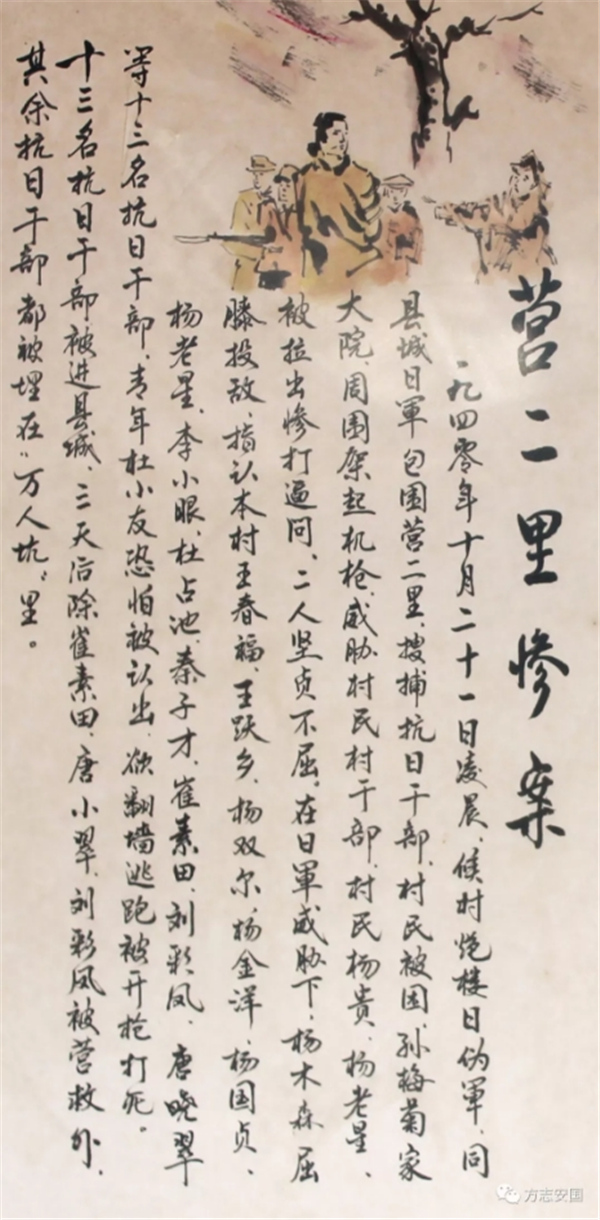 营二里惨案
一九四零年十月二十一日凌晨、侯村炮楼日伪军、同
县城日軍包围营二里、搜捕抗日干部、村民被困、孙梅菊家
大院、周围架起机枪、威胁村民村干部、村民杨贵、杨老星、
被拉出惨打逼问、二人坚贞不屈。在日軍威胁下、杨木森屈
膝投敌、指认本村王春福、王跃乡、杨双尔、杨金洋、杨国贞、
杨老星、李小眼、杜占池、秦子才、崔素田、刘彩凤、唐晓翠
等十三名抗日干部、青年杜小友恐怕被认出、欲翻墙逃跑被开枪打死。
十三名抗日干部被进县城、三天后除崔素田、唐小翠、刘彩凤被营救外、
其余抗日干部都被埋在“万人坑”里。
方志安国